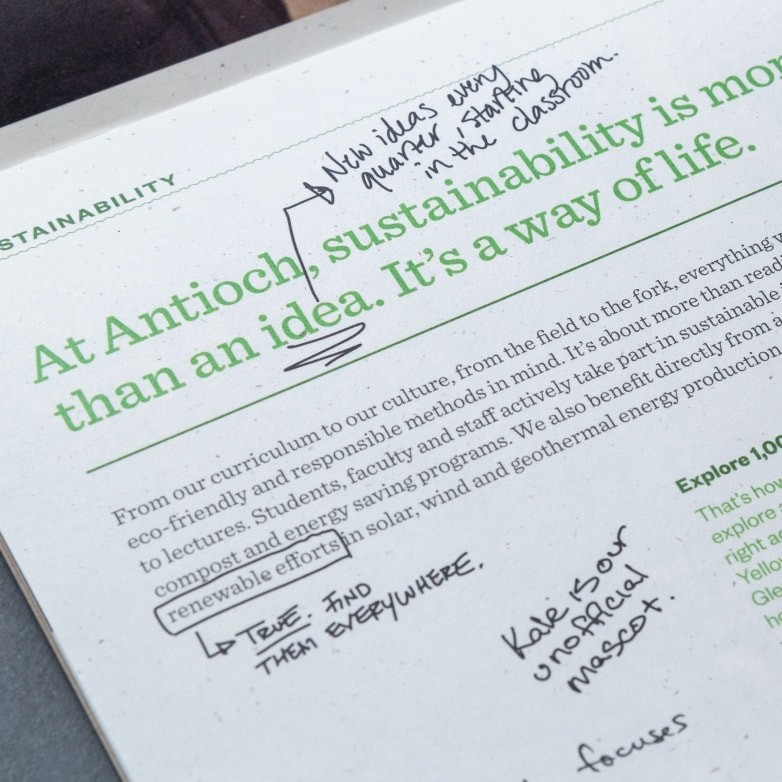 New ideas every
quarter, starting
in the classroom.
STAINABILITY
At Antioch, sustainability is mor
than an idea. It's a way of life.
From our curriculum to our culture, from the field to the fork, everything
eco-friendly and responsible methods in mind. It's about more than read
to lectures. Students, faculty and staff actively take part in sustainable
compost and energy saving programs. We also benefit directly from a
renewable efforts in solar, wind and geothermal energy production
TRUE. FIND
THEM EVERYWHERE.
Kale is our
unofficial
mascot.
focuses
Explore 1,00
That's how
explore
right a
Yello
Gle
h